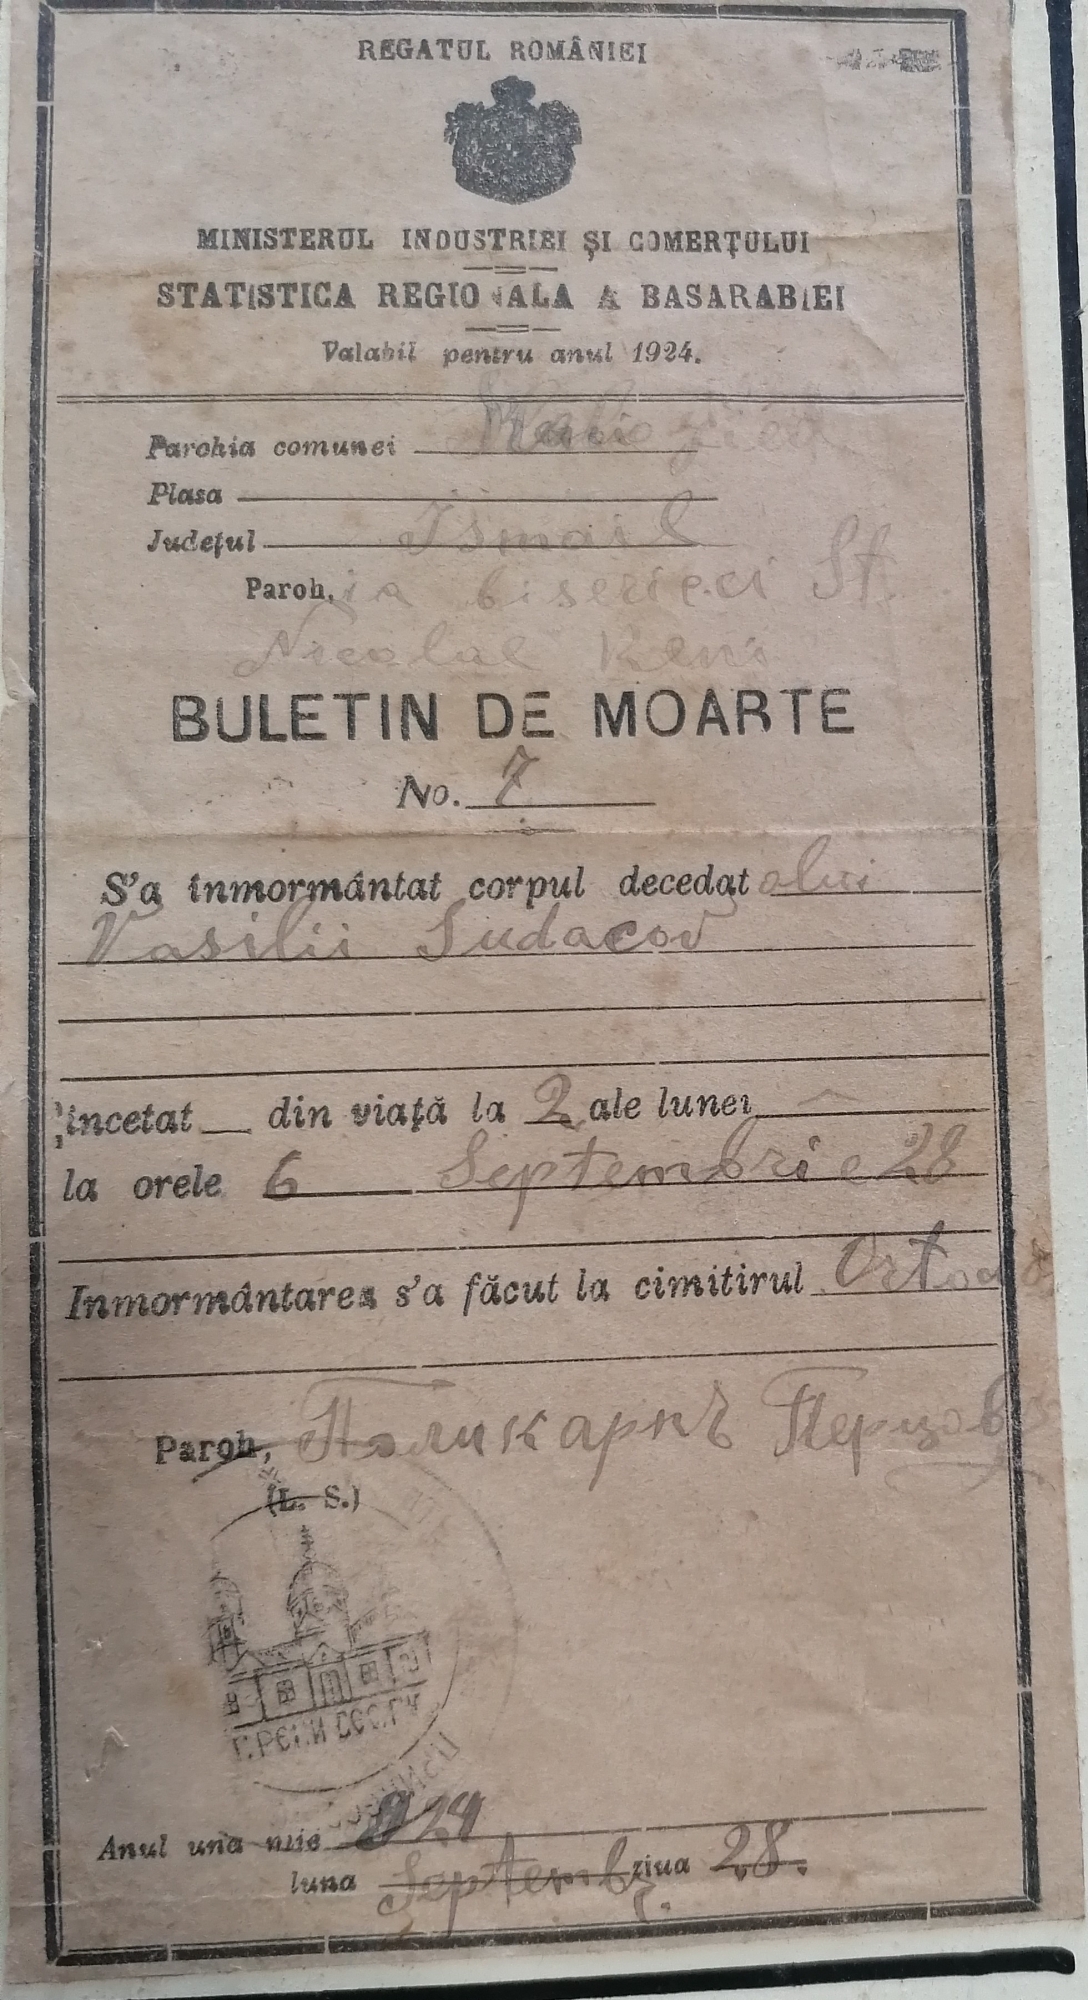 REGATUL ROMÂNIEI
MINISTERUL INDUSTRIEI ȘI COMERȚULUI
STATISTICA REGIONALA A BASARABIEI
Valabil pentru anul 1924.
Parohia comunei
Plasa
Județul Ismail
Paroh, ia bisericei St.
Nicolae Reni
BULETIN DE MOARTE
No. 7
S'a înmormântat corpul decedat alui
Vasilii Sudacov
încetat din viață la 2 ale lunei
la orele 6 Septembrie 28
Inmormântarea s'a făcut la cimitirul Ortod
Paroh, Поликарпъ Перцовъ
(L. S.)
Г. РЕНИ БЕС. ГУ
Anul una mie 924
luna Septembr. ziua 28.